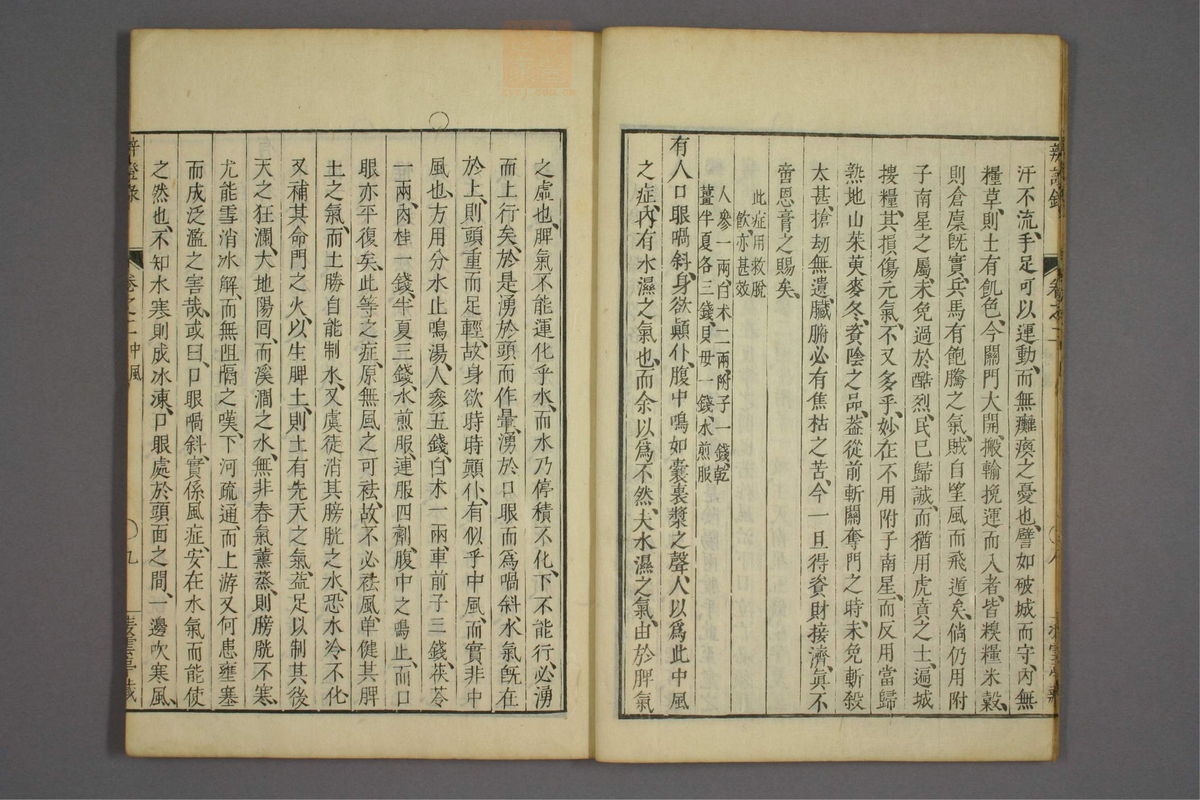 汗不流、手足可以運動、而無癱瘓之憂也、譬如破城而守、內無
糧草、則士有飢色、今關門大開、搬輸挽運而入者、皆糗糧米穀、
則倉廩旣實、兵馬有飽騰之氣、賊自望風而飛遁矣、倘仍用附
子南星之屬、未免過於酷烈、民已歸誠、而猶用虎賁之士、遍城
搜糧、其損傷元氣、不又多乎、妙在不用附子南星、而反用當歸
熟地山茱萸麥冬、資陰之品、葢從前斬關奪門之時、未免斬殺
太甚、搶刼無遺、臟腑必有焦枯之苦、今一旦得資財接濟、眞不
啻恩膏之賜矣、
此症用救脫
飮、亦甚效
人參一兩白术二兩附子一錢、乾
薑半夏各三錢、貝母一錢、水煎服
有人口眼喎斜、身欲顚仆、腹中鳴如囊裹漿之聲、人以爲此中風
之症、內有水濕之氣也、而余以爲不然、夫水濕之氣、由於脾氣
之虛也、脾氣不能運化乎水、而水乃停積不化、下不能行、必湧
而上行矣、於是湧於頭而作暈、湧於口眼而爲喎斜、水氣旣在
於上、則頭重而足輕、故身欲時時顚仆、有似乎中風、而實非中
風也、方用分水止鳴湯、人參五錢、白术一兩、車前子三錢、茯苓
一兩、肉桂一錢、半夏三錢、水煎服、連服四劑、腹中之鳴止、而口
眼亦平復矣、此等之症、原無風之可祛、故不必祛風、單健其脾
土之氣、而土勝自能制水、又虞徒消其膀胱之水、恐水冷不化
又補其命門之火、以生脾土、則土有先天之氣、益足以制其後
天之狂瀾、大地陽回、而溪澗之水、無非春氣薰蒸、則膀胱不寒、
尤能雪消冰解、而無阻隔之嘆、下河疏通、而上游又何患壅塞
而成泛濫之害哉、或曰、口眼喎斜、實係風症、安在水氣而能使
之然也、不知水寒則成冰凍、口眼處於頭面之間、一邊吹寒風、
卷之二 中風
九